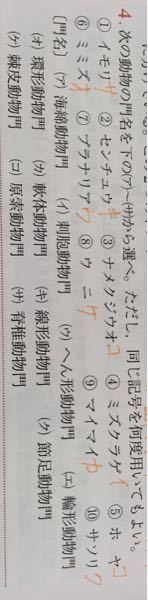 4. 次の動物の門名を下の(ア)~(サ)から選べ。ただし，同じ記号を何度用いてもよい。
① イモリ サ ② センチュウ キ ③ ナメクジウオ コ ④ ミズクラゲ イ ⑤ ホヤ コ
⑥ ミミズ オ ⑦ プラナリア ウ ⑧ ウニ ケ ⑨ マイマイ カ ⑩ サソリ ク
〔門名〕 (ア) 海綿動物門 (イ) 刺胞動物門 (ウ) へん形動物門 (エ) 輪形動物門
(オ) 環形動物門 (カ) 軟体動物門 (キ) 線形動物門 (ク) 節足動物門
(ケ) 棘皮動物門 (コ) 原索動物門 (サ) 脊椎動物門